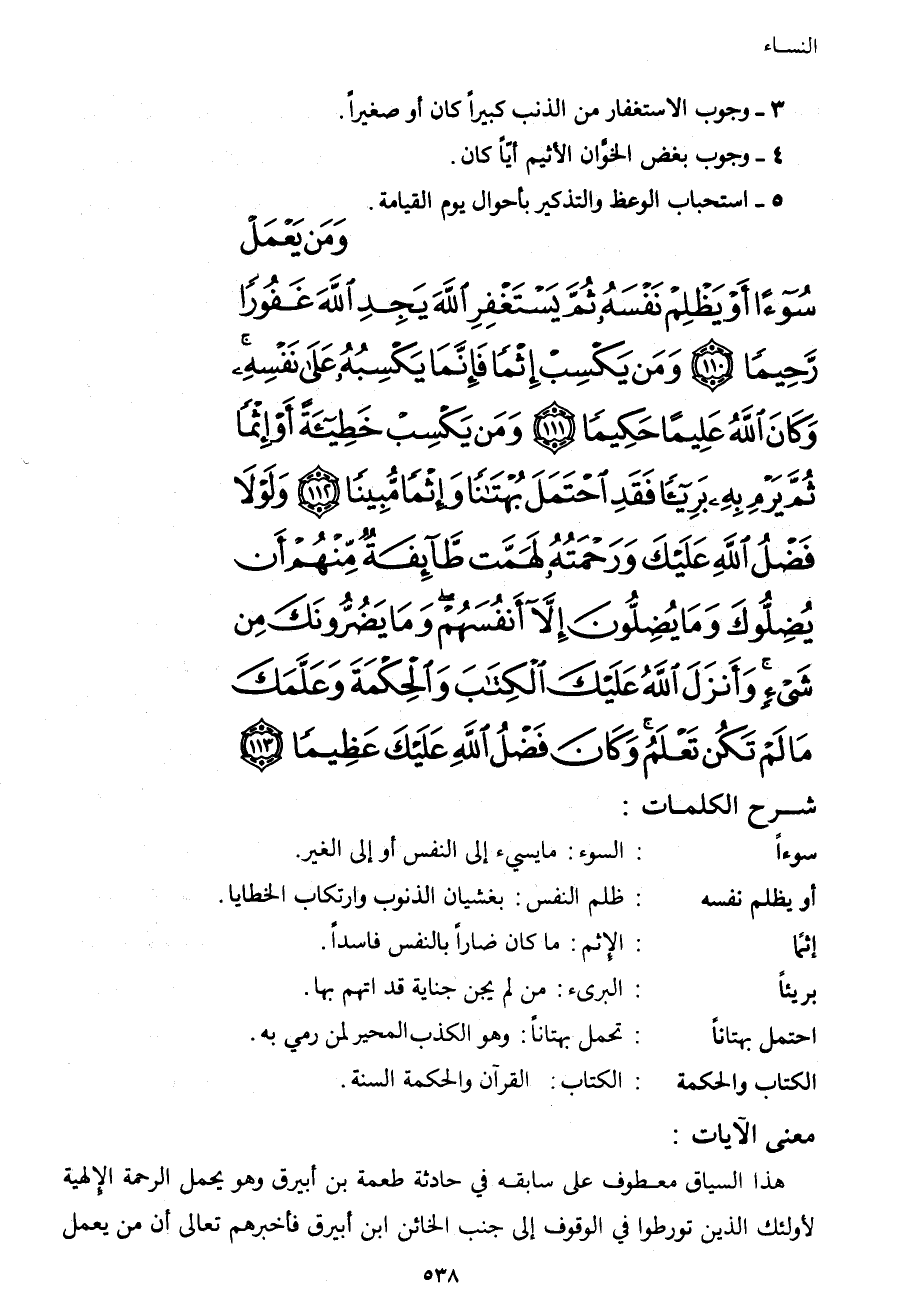 النساء
٣ ـ وجوب الاستغفار من الذنب كبيراً كان أو صغيراً.
٤ ـ وجوب بغض الخوَّان الأثيم أيّاً كان.
٥ ـ استحباب الوعظ والتذكير بأحوال يوم القيامة.
وَمَن يَعۡمَلۡ
سُوٓءًا أَوۡ يَظۡلِمۡ نَفۡسَهُۥ ثُمَّ يَسۡتَغۡفِرِ ٱللَّهَ يَجِدِ ٱللَّهَ غَفُورًا
رَّحِيمًا ١١٠ وَمَن يَكۡسِبۡ إِثۡمًا فَإِنَّمَا يَكۡسِبُهُۥ عَلَىٰ نَفۡسِهِۦۚ
وَكَانَ ٱللَّهُ عَلِيمًا حَكِيمًا ١١١ وَمَن يَكۡسِبۡ خَطِيٓـَٔةً أَوۡ إِثۡمًا
ثُمَّ يَرۡمِ بِهِۦ بَرِيٓـًٔا فَقَدِ ٱحۡتَمَلَ بُهۡتَٰنًا وَإِثۡمًا مُّبِينًا ١١٢ وَلَوۡلَا
فَضۡلُ ٱللَّهِ عَلَيۡكَ وَرَحۡمَتُهُۥ لَهَمَّت طَّآئِفَةٌ مِّنۡهُمۡ أَن
يُضِلُّوكَ وَمَا يُضِلُّونَ إِلَّآ أَنفُسَهُمۡۖ وَمَا يَضُرُّونَكَ مِن
شَيۡءٍۚ وَأَنزَلَ ٱللَّهُ عَلَيۡكَ ٱلۡكِتَٰبَ وَٱلۡحِكۡمَةَ وَعَلَّمَكَ
مَا لَمۡ تَكُن تَعۡلَمُۚ وَكَانَ فَضۡلُ ٱللَّهِ عَلَيۡكَ عَظِيمًا ١١٣
شـرح الكلمـات :
سوءاً : السوء: مايسيء إلى النفس أو إلى الغير.
أو يظلم نفسه : ظلم النفس: بغشيان الذنوب وارتكاب الخطايا.
إثمًا : الإثم: ما كان ضاراً بالنفس فاسداً.
بريئاً : البرىء: من لم يجن جناية قد اتهم بها.
احتمل بهتاناً : تحمل بهتاناً: وهو الكذب المحير لمن رمي به.
الكتاب والحكمة : الكتاب: القرآن والحكمة السنة.
معنى الآيات :
هذا السياق معـطوف على سابقـه في حادثة طعمة بن أبيرق وهو يحمل الرحمة الإلهية
لأولئك الذين تورطوا في الوقوف إلى جنب الخائن ابن أبيرق فأخبرهم تعالى أن من يعمل
٥٣٨